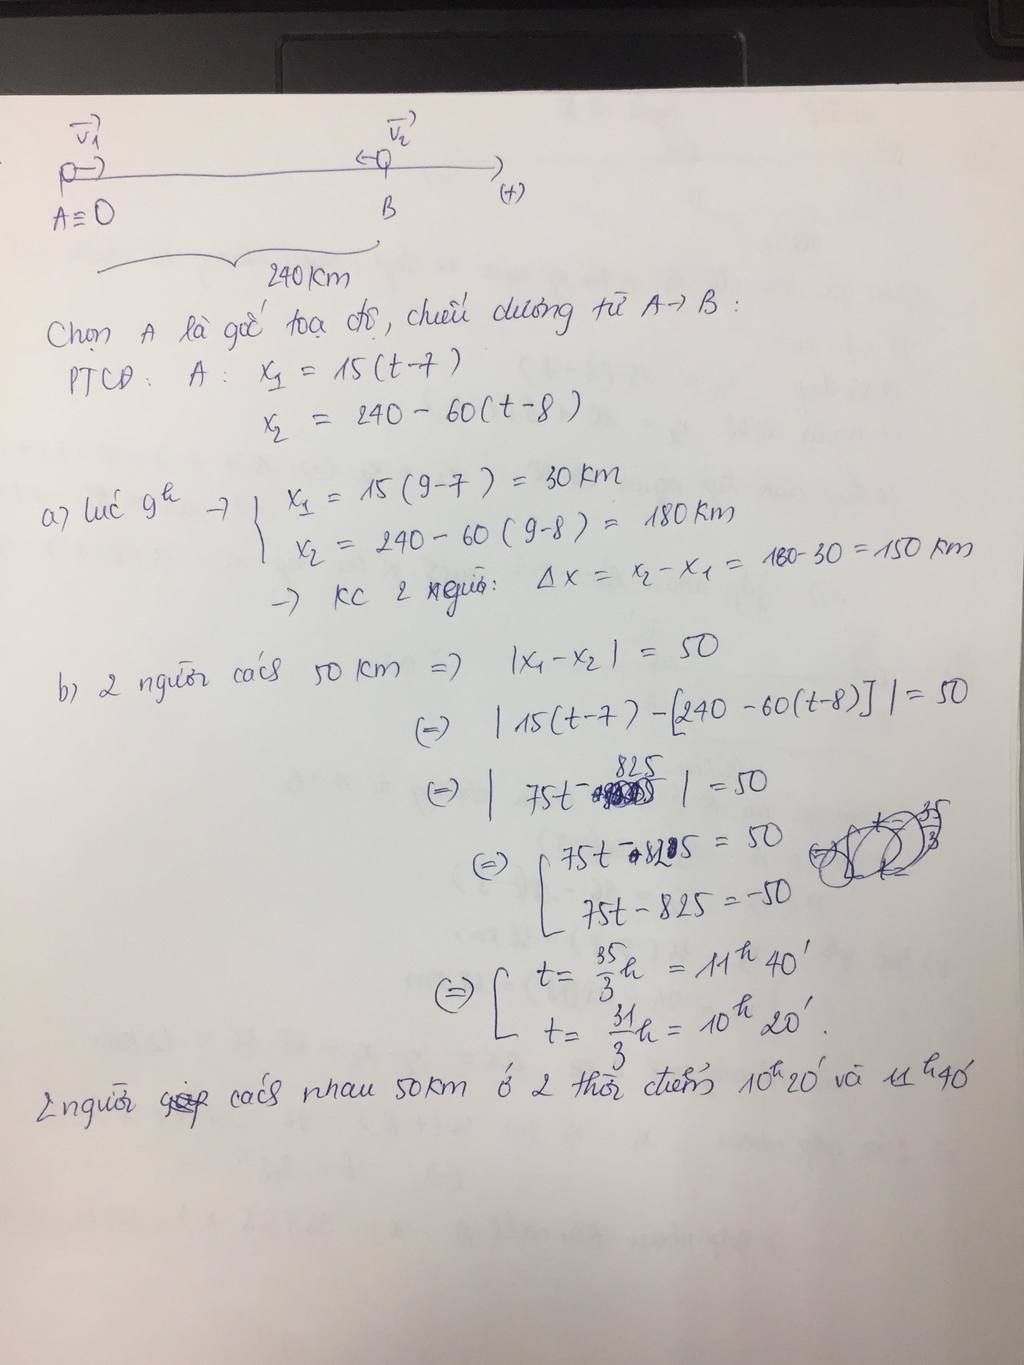 v₁ v₂
A ≡ O B (+)
240 Km
Chọn A là gốc toạ độ, chiều dương từ A → B :
PTCĐ : A : x₁ = 15(t-7)
x₂ = 240 - 60(t-8)
a) lúc 9ʰ → { x₁ = 15(9-7) = 30 Km
x₂ = 240 - 60(9-8) = 180 Km
→ KC 2 người: Δx = x₂ - x₁ = 180-30 = 150 Km
b) 2 người cách 50 Km => |x₁ - x₂| = 50
(=) | 15(t-7) - [240 - 60(t-8)] | = 50
(=) | 75t - 825 | = 50
(=) [ 75t - 825 = 50
75t - 825 = -50
(=) [ t = 35/3 h = 11ʰ 40'
t = 31/3 h = 10ʰ 20'.
2 người cách nhau 50 Km ở 2 thời điểm 10ʰ20' và 11ʰ40'